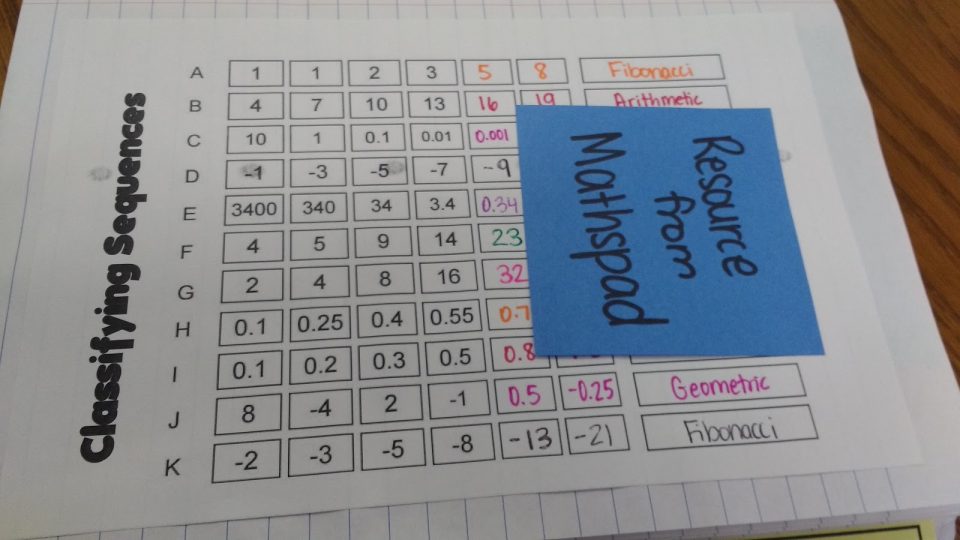 Classifying Sequences
A 1 1 2 3 5 8 Fibonacci
B 4 7 10 13 16 19 Arithmetic
C 10 1 0.1 0.01 0.001
D -1 -3 -5 -7 -9
E 3400 340 34 3.4 0.34
F 4 5 9 14 23
G 2 4 8 16 32
H 0.1 0.25 0.4 0.55 0.7
I 0.1 0.2 0.3 0.5 0.8
J 8 -4 2 -1 0.5 -0.25 Geometric
K -2 -3 -5 -8 -13 -21 Fibonacci
Resource
from
Mathspad